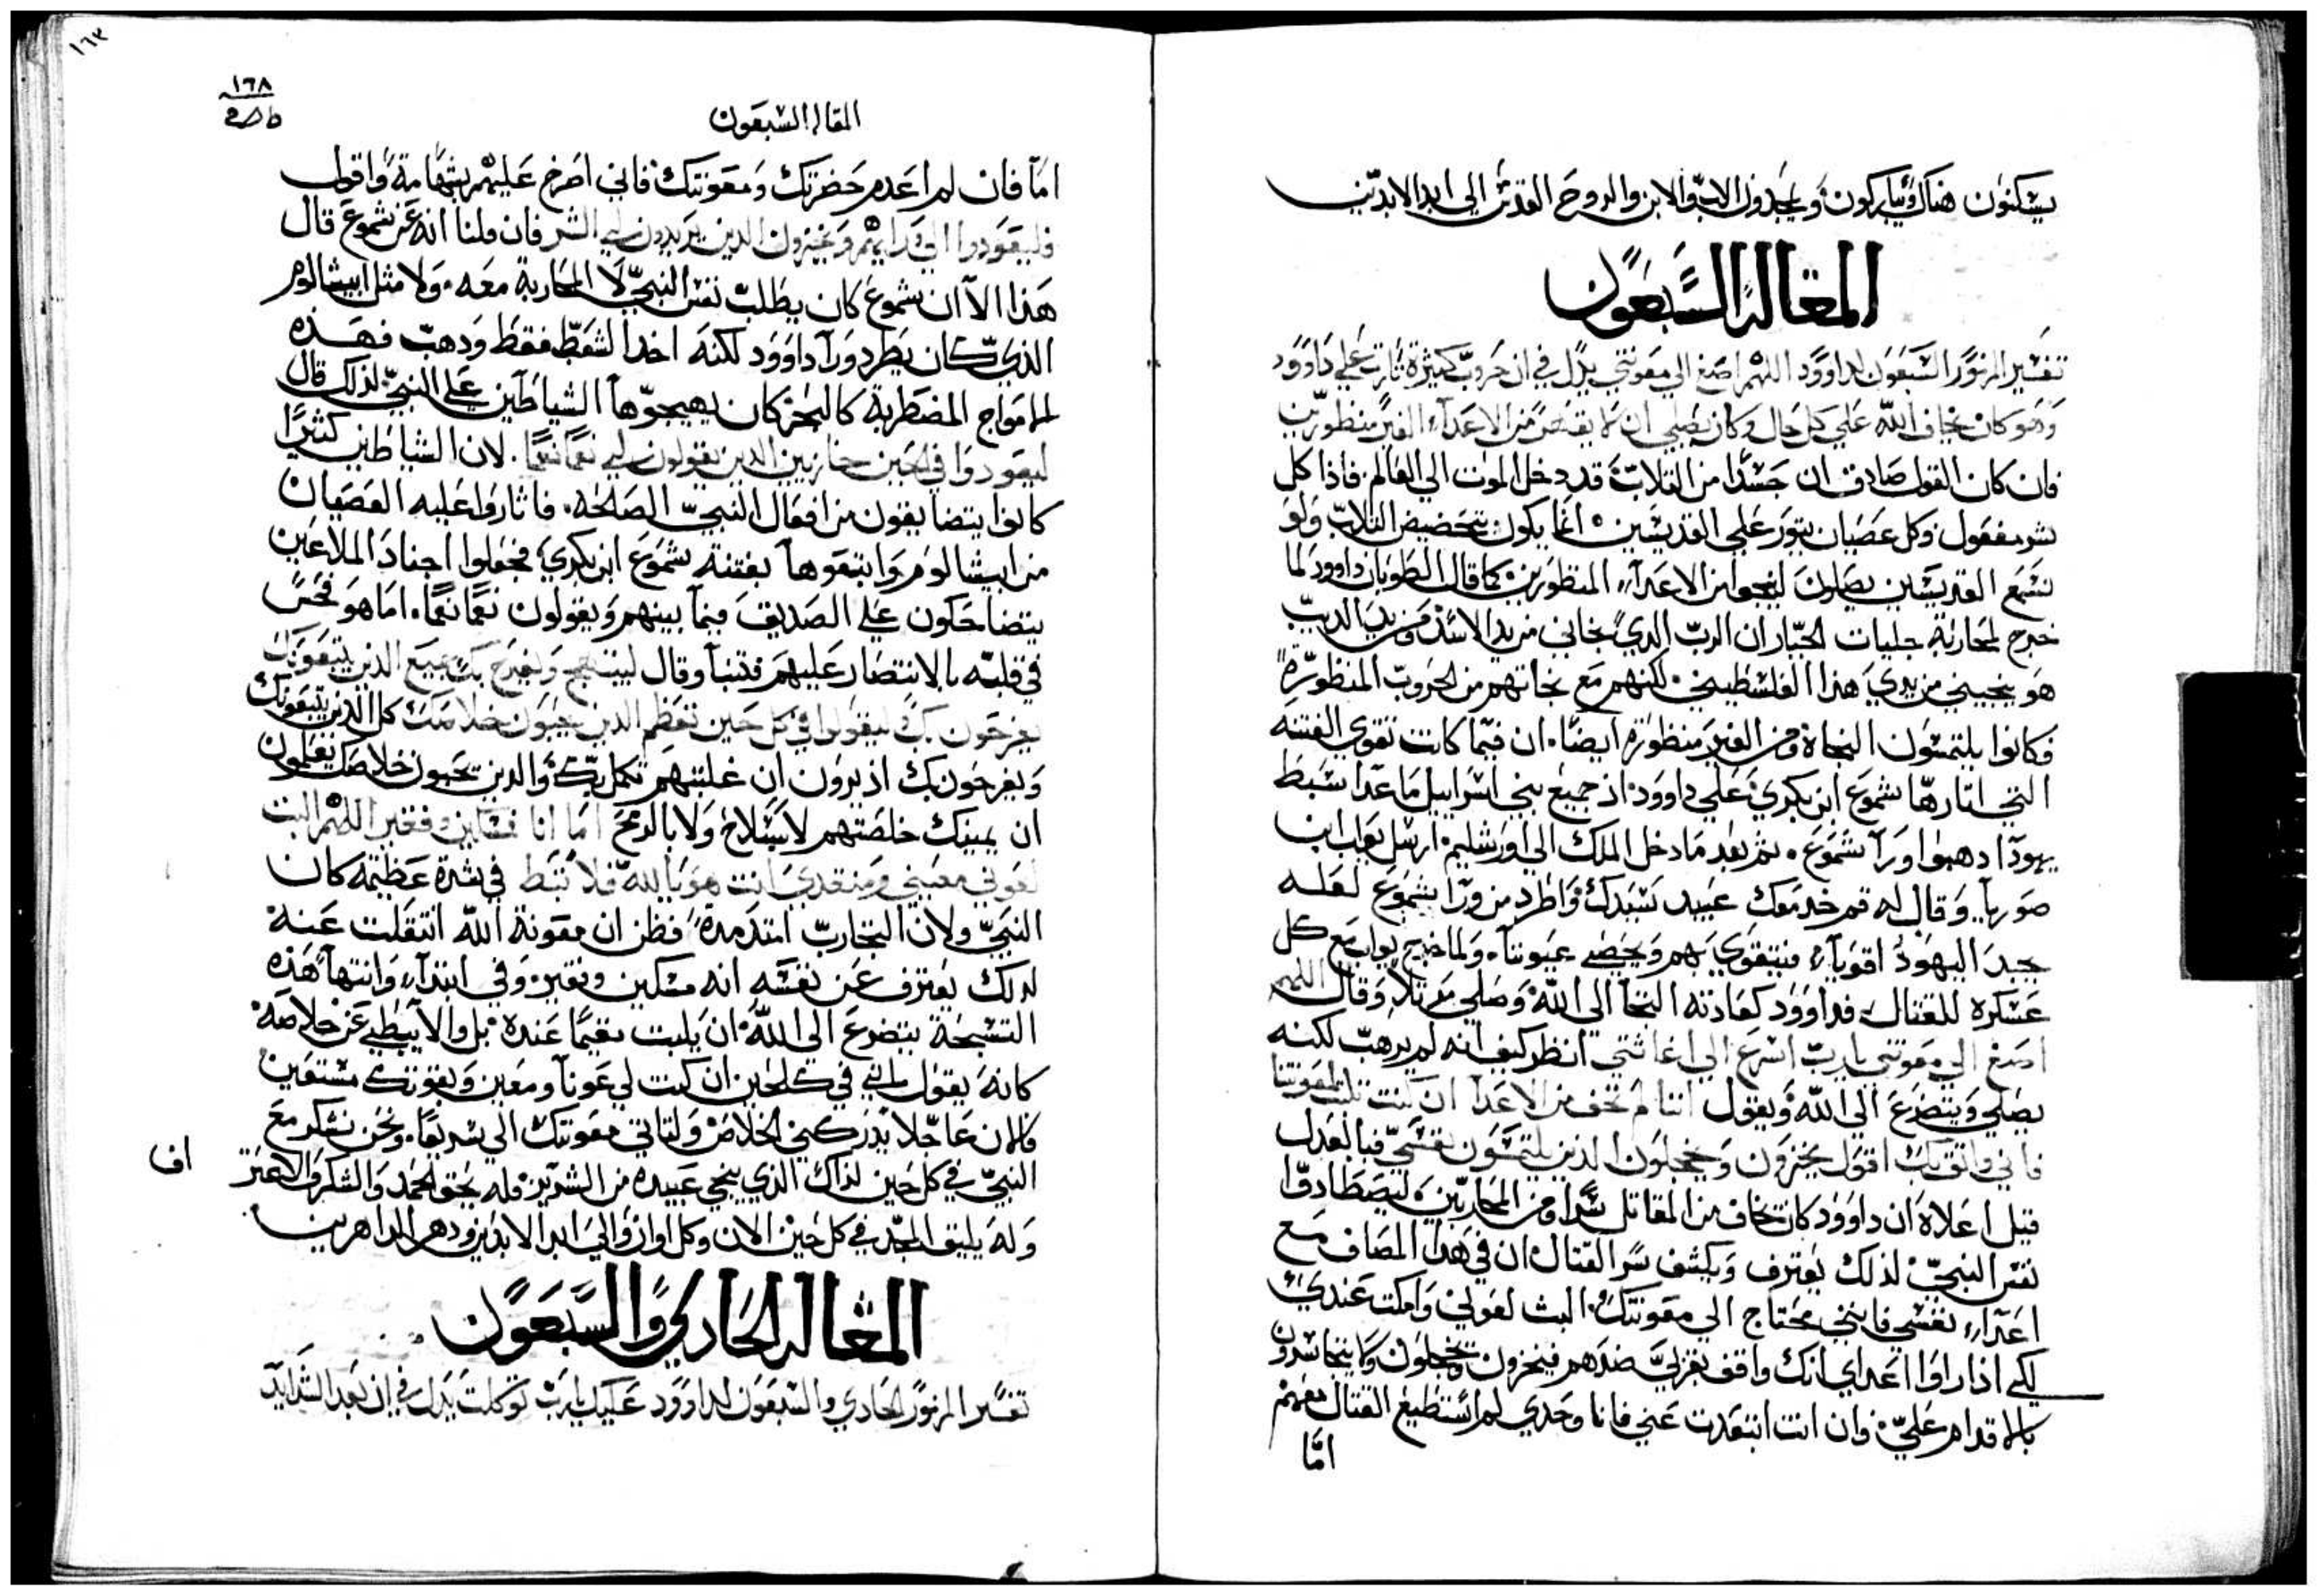 يسكنون هناك ويباركون ويمجدون الاب والابن والروح القدس الي ابد الابدين
المقالة السبعون
تفسير المزمور السبعون لداوود اللهم اصغ الي معونتي يدل في ان حروب كثيرة ثارت علي داوود
وهو كان يخاف الله علي كل حال وكان يصلي ان لا يقتنص من الاعداء الغير منظورين
فان كان القول صادق ان حسدا من التلاب قد دخل الموت الي العالم فاذا كل
شر مفعول وكل عصيان يتور علي القديسين انما يكون بتحضيض التلاب ولو
نسمع القديسين يصلون لينجوا من الاعداء المنظورين كما قال الطوبان داوود لما
خرج لمحاربة جليات الجبار ان الرب الدي نجاني من يد الاسد ومن يد الدب
هو ينجيني من يدي هذا الفلسطيني لكنهم مع نجاتهم من الحروب المنظورة
فكانوا يلتمسون النجاة ومن الغير منظورة ايضا ان فيما كانت تقوي الفتنه
التي اثارها شموع ابن بكري علي داوود اذ جميع بني اسراييل ما عدا سبط
يهودا دهبوا ورآ شموع ثم بعد ما دخل الملك الي اورشليم ارسل يواب ابن
صوريا وقال له قم خد معك عبيد سيدك واطرد من ورآ شموع لعله
يجد اليهود اقوياء فيتقوي بهم ويخصي عيوننا ولما خرج يواب مع كل
عسكره للقتال فداوود كعادته التجا الي الله وصلي مرتلا وقال اللهم
اصغ الي معونتي يا رب اسرع الي اغاثتي انظر كيف انه لم يرهب لكنه
يصلي ويتضرع الي الله ويقول اننا لم نخف من الاعدا ان كنت تلبث لمعونتنا
فاني واثق بك اقول يخزون ويخجلون الدين يلتمسون نفسي فبالعدل
قيل اعلاه ان داوود كان يخاف من المقاتل سرا ومن المحاربين ليصطادوا
نفس النبي لذلك يعترف ويكشف سر القتال ان في هدا المصاف مع
اعداء نفسي فانني محتاج الي معونتك البث لعوني وامكت عندي
لكي اذا راوا اعداي انك واقف بقربي ضدهم فيخزون ويخجلون ولا يتجاسرون
بالاقدام علي وان انت ابتعدت عني فانا وحدي لم استطيع القتال معهم
اما
١٦٣
١٦٨
المقالة السبعون
اما فان لم اعدم حضرتك ومعونتك فاني اصرخ عليهم بشهامة واقول
فليعودوا الي ورايهم ويخزون الدين يريدون لي الشر فان قلنا انه عن شموع قال
هذا الا ان شموع كان يطلب نفس النبي لا المحاربة معه ولا مثل ابيشالوم
الذي كان يطرد ورآ داوود لكنه اخد الشعب فقط ودهب فهذه
الامواج المضطربة كالبحر كان يهيجوها الشياطين علي النبي لذلك قال
ليعودوا في الحين خازيين الدين يقولون لي نعما نعما لان الشياطين كثيرا
كانوا يتضايقون من افعال النبي الصالحه فاثاروا عليه العصيان
من ابيشالوم واتبعوها بفتنه شموع ابن بكري فجعلوا اجناد الملاعين
يتضاحكون علي الصديق فيما بينهم ويقولون نعما نعما اما هو فحس
في قلبه بالانتصار عليهم فتنبا وقال ليبتهج ويفرح بك جميع الذين يبتغونك
يفرحون بك وليقولوا في كل حين تعظم الدين يحبون خلاصك كل الذين يبتغونك
ويفرحون بك اذ يرون ان غلبتهم تكمل بك والدين يحبون خلاصك يعلمون
ان يمينك خلصتهم لا بسلاح ولا بالرمح اما انا فمسكين وفقير اللهم البث
لعوني معيني ومنقدي انت هو يا الله فلا تبط في شدة عظيمة كان
النبي ولان التجارب امتد مدة فظن ان معونة الله انتقلت عنه
لذلك يعترف عن نفسه انه مسكين وفقير وفي ابتداء وانتهآ هذه
التسبحة يتضرع الي الله ان يلبت مقيما عنده بل والا يبطي عن خلاصه
كانه يقول انني في كل حين ان كنت لي عونا ومعين وبقوتك مستعين
فالان عاجلا يدركني الخلاص ولتاتي معونتك الي سريعا ونحن نشكر مع
النبي في كل حين لذاك الذي ينجي عبيده من الشرير وله يحق الحمد والشكر والاعتر
اف
وله يليق المجد في كل حين الان وكل اوان والي ابد الابدين ودهر الداهرين
المقالة الحادي والسبعون
تفسير المزمور الحادي والسبعون لداوود عليك يا رب توكلت يدل في ان بعد الشدايد